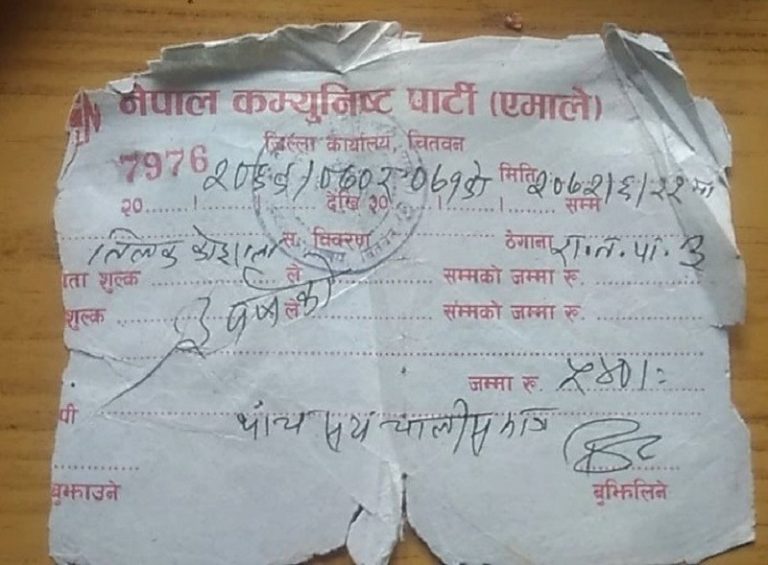 नेपाल कम्युनिष्ट पार्टी (एमाले)
जिल्ला कार्यालय, चितवन
7976
मिति २०७२।६।२२ मा
२०......।......।...... देखि २०......।......।...... सम्म
तिलक स. विवरण ठेगाना रा.न.पा. ३
ता शुल्क ले सम्मको जम्मा रु.
शुल्क ३ वर्षको ले सम्मको जम्मा रु.
जम्मा रु. ५४०।:
पी पाँच सय चालीस मात्र
बुझाउने बुझिलिने